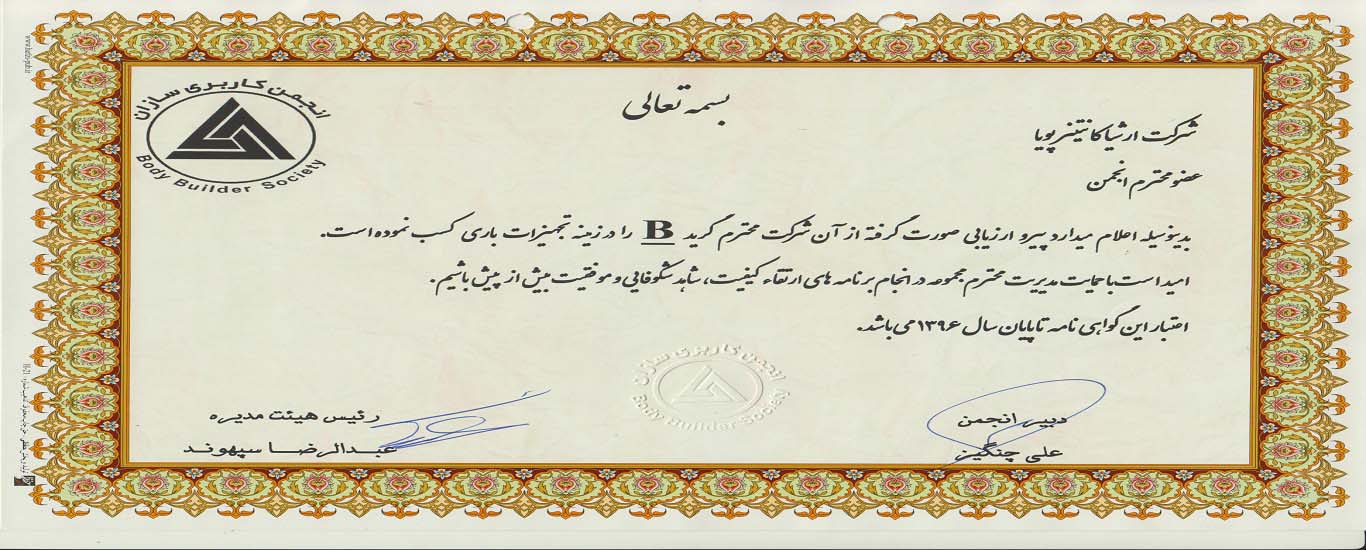 انجمن کاربری سازان
Body Builder Society
بسمه تعالی
شرکت ارشیا کانتینر پویا
عضو محترم انجمن
بدینوسیله اعلام میدارد پیرو ارزیابی صورت گرفته از آن شرکت محترم گرید B را در زمینه تجهیزات باری کسب نموده است.
امید است با حمایت مدیریت محترم مجموعه در انجام برنامه های ارتقاء کیفیت، شاهد شکوفایی و موفقیت بیش از پیش باشیم.
اعتبار این گواهی نامه تا پایان سال ۱۳۹۶ می باشد.
انجمن کاربری سازان
Body Builder Society
دبیر انجمن
علی چنگیز
رئیس هیئت مدیره
عبدالرضا سپهوند